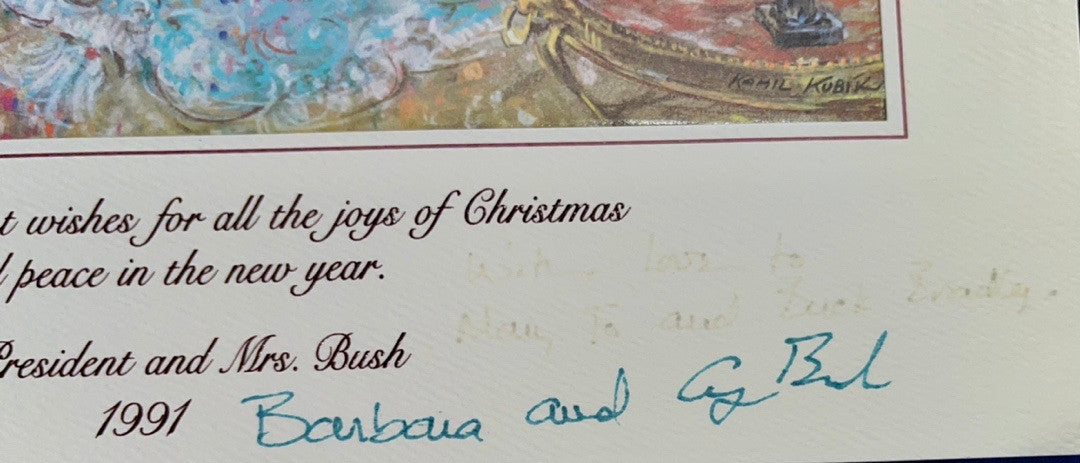 KAMIL KUBIK
t wishes for all the joys of Christmas
peace in the new year.
With love to
Mary Jo and Buck Bradley.
President and Mrs. Bush
1991
Barbara and Bush